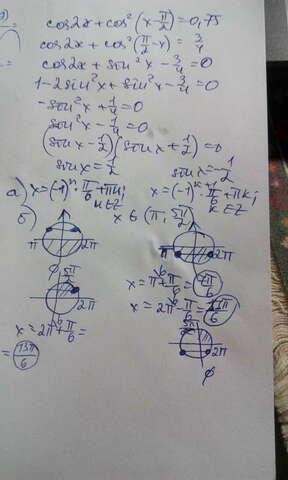 cos2x + cos²(x - π/2) = 0,75
cos2x + cos²(π/2 - x) = 3/4
cos2x + sin²x - 3/4 = 0
1 - 2sin²x + sin²x - 3/4 = 0
-sin²x + 1/4 = 0
sin²x - 1/4 = 0
(sinx - 1/2)(sinx + 1/2) = 0
sinx = 1/2 sinx = -1/2
а) x = (-1)ᵏ · π/6 + πk; k ∈ Z x = (-1)ᵏ⁺¹ · π/6 + πk; k ∈ Z
б) x ∈ (π; 5π/2)
π 2π π 2π
5π/2 2π
x = π + π/6 = 7π/6
x = 2π - π/6 = 11π/6
x = 2π + π/6 =
= 13π/6
5π/2 2π